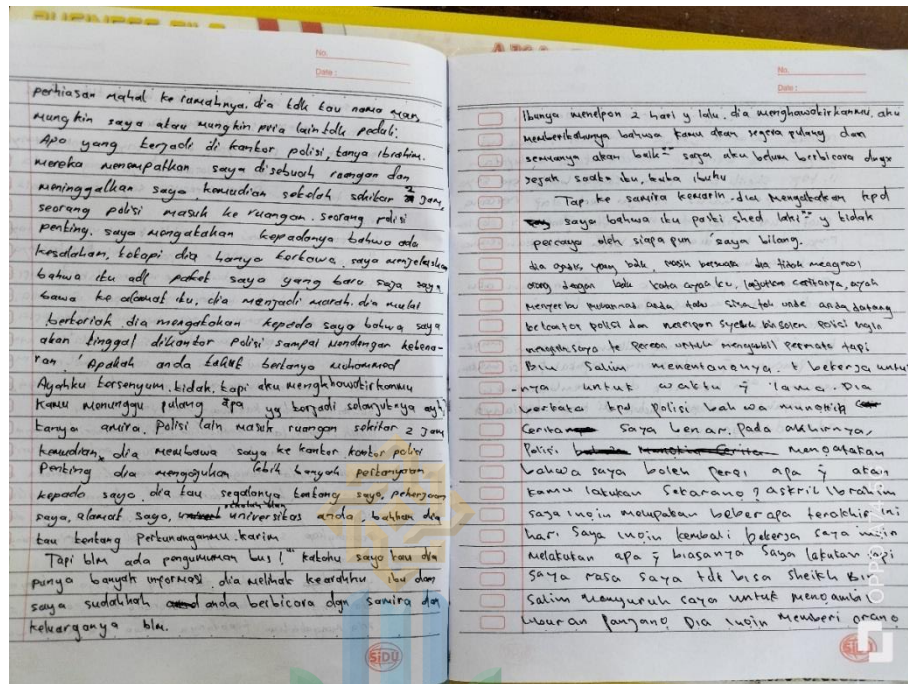 BUSINESS FILE
No.
Date :
perhiasan mahal ke rumahnya. dia tdk tau nama man,
mungkin saya atau mungkin pria lain tdk peduli.
Apa yang terjadi di kantor polisi, tanya ibrahim.
mereka menempatkan saya disebuah ruangan dan
meninggalkan saya kemudian setelah sekitar 2 jam,
seorang polisi masuk ke ruangan. seorang polisi
penting. saya mengatakan kepadanya bahwa ada
kesalahan, tetapi dia hanya tertawa. saya menjelaskan
bahwa itu adl paket saya yang baru saja saya
bawa ke alamat itu, dia menjadi marah. dia mulai
berteriak dia mengatakan kepada saya bahwa saya
akan tinggal dikantor polisi sampai mendengan kebena-
ran. Apakah anda takut bertanya mohammed
Ayahku tersenyum. tidak, tapi aku mengkhawatirkanmu
kamu menunggu pulang apa yg terjadi selanjutnya ayh,
tanya amira. Polisi lain masuk ruangan sekitar 2 jam
kemudian, dia membawa saya ke kantor kantor polisi
Penting dia mengajukan lebih banyak pertanyaan
kepada saya. dia tau segalanya tentang saya, pekerjaan
saya, alamat saya, sekolah dan universitas anda, bahkan dia
tau tentang Pertunanganmu. karim
Tapi blm ada pengumuman bus! kataku saya tau dia
punya banyak informasi. dia melihat kearahku ibu dan
saya sudahkah anda berbicara dgn samira dan
keluarganya blm.
No.
Date :
Ibunya menelpon 2 hari y lalu. dia menghawatirkanmu, aku
memberitahunya bahwa kamu akan segera pulang dan
semuanya akan baik" saja aku belum berbicara dngn
sejak saat itu, kata ibuku
Tapi ke samira kemarin. dia mengatakan kpd
saya bahwa itu pasti shed laki" y tidak
percaya oleh siapa pun saya bilang.
dia gadis yang baik, masih bermata dia tidak mengenal
orang dengan kata ayahku, lanjutkan ceritanya, ayah
menyerbu muhannad anda tahu anda datang
bekantor polisi dan menelpon syeikh bin salem polisi ingin
saya ke untuk mengambil permata tapi
Bin Salim menentangnya. t bekerja untu
-nya untuk waktu ÿ lama. Dia
berkata kpd polisi bahwa mungkin
Cerita saya benar. Pada akhirnya,
Polisi mengatakan
bahwa saya boleh pergi apa ÿ akan
kamu lakukan sekarang? Ibrahim
saya ingin melupakan beberapa terakhir ini
hari. Saya ingin kembali bekerja saya ingin
melakukan apa ÿ biasanya saya lakukan tapi
saya rasa saya tdk bisa Sheikh Bin
Salim menyuruh saya untuk mengambil
liburan panjang. Dia ingin memberi orang
SiDU
SiDU
OPPO A94